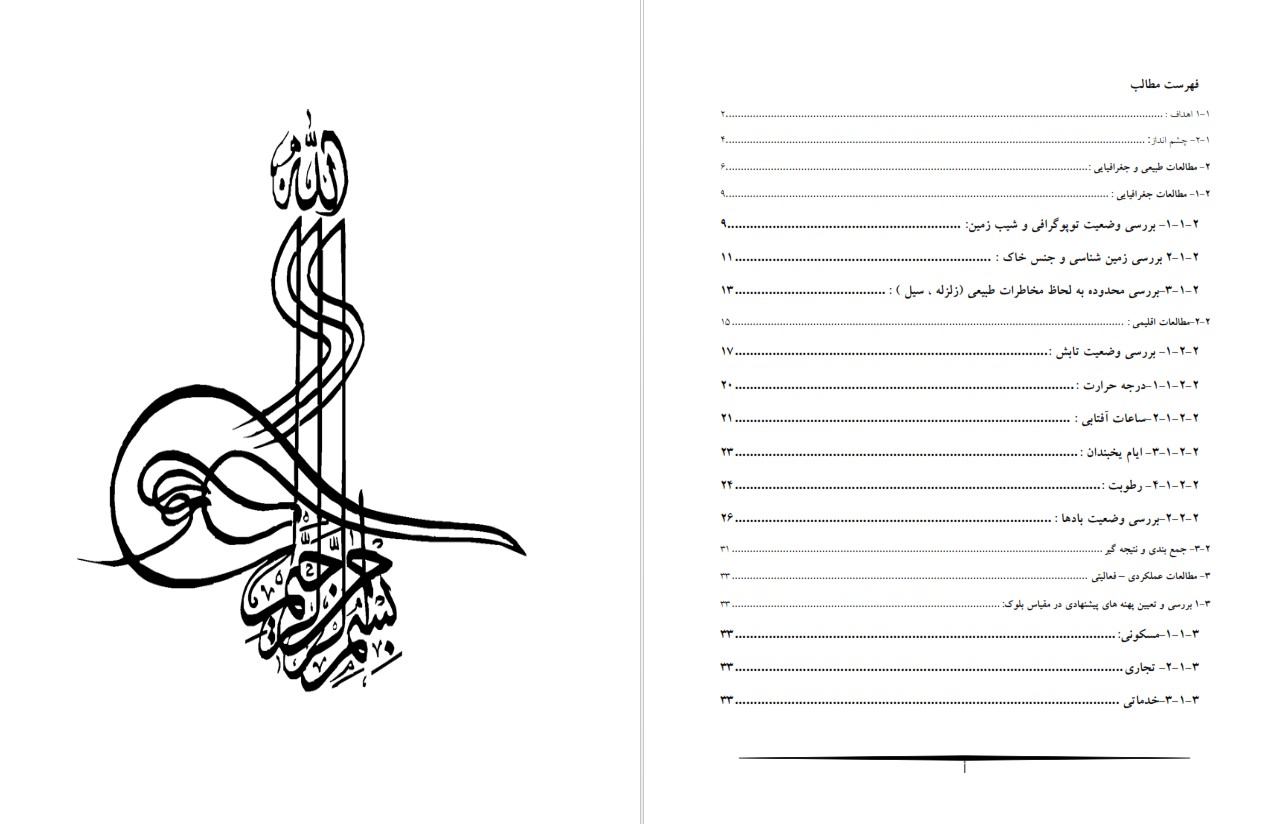 بسم الله الرحمن الرحیم
فهرست مطالب
۱-۱ اهداف : ........ ۲
۱-۲- چشم انداز: ........ ۴
۲- مطالعات طبیعی و جغرافیایی : ........ ۶
۲-۱- مطالعات جغرافیایی : ........ ۹
۲-۱-۱- بررسی وضعیت توپوگرافی و شیب زمین: ........ ۹
۲-۱-۲ بررسی زمین شناسی و جنس خاک : ........ ۱۱
۲-۱-۳-بررسی محدوده به لحاظ مخاطرات طبیعی (زلزله ، سیل ) : ........ ۱۳
۲-۲-مطالعات اقلیمی : ........ ۱۵
۲-۲-۱- بررسی وضعیت تابش : ........ ۱۷
۲-۲-۱-۱-درجه حرارت : ........ ۲۰
۲-۲-۱-۲-ساعات آفتابی : ........ ۲۱
۲-۲-۱-۳- ایام یخبندان : ........ ۲۳
۲-۲-۱-۴- رطوبت : ........ ۲۴
۲-۲-۲-بررسی وضعیت بادها : ........ ۲۶
۲-۳- جمع بندی و نتیجه گیر ........ ۳۱
۳- مطالعات عملکردی – فعالیتی ........ ۳۳
۳-۱ بررسی و تعیین پهنه های پیشنهادی در مقیاس بلوک: ........ ۳۳
۳-۱-۱-مسکونی: ........ ۳۳
۳-۱-۲- تجاری ........ ۳۳
۳-۱-۳-خدماتی ........ ۳۳